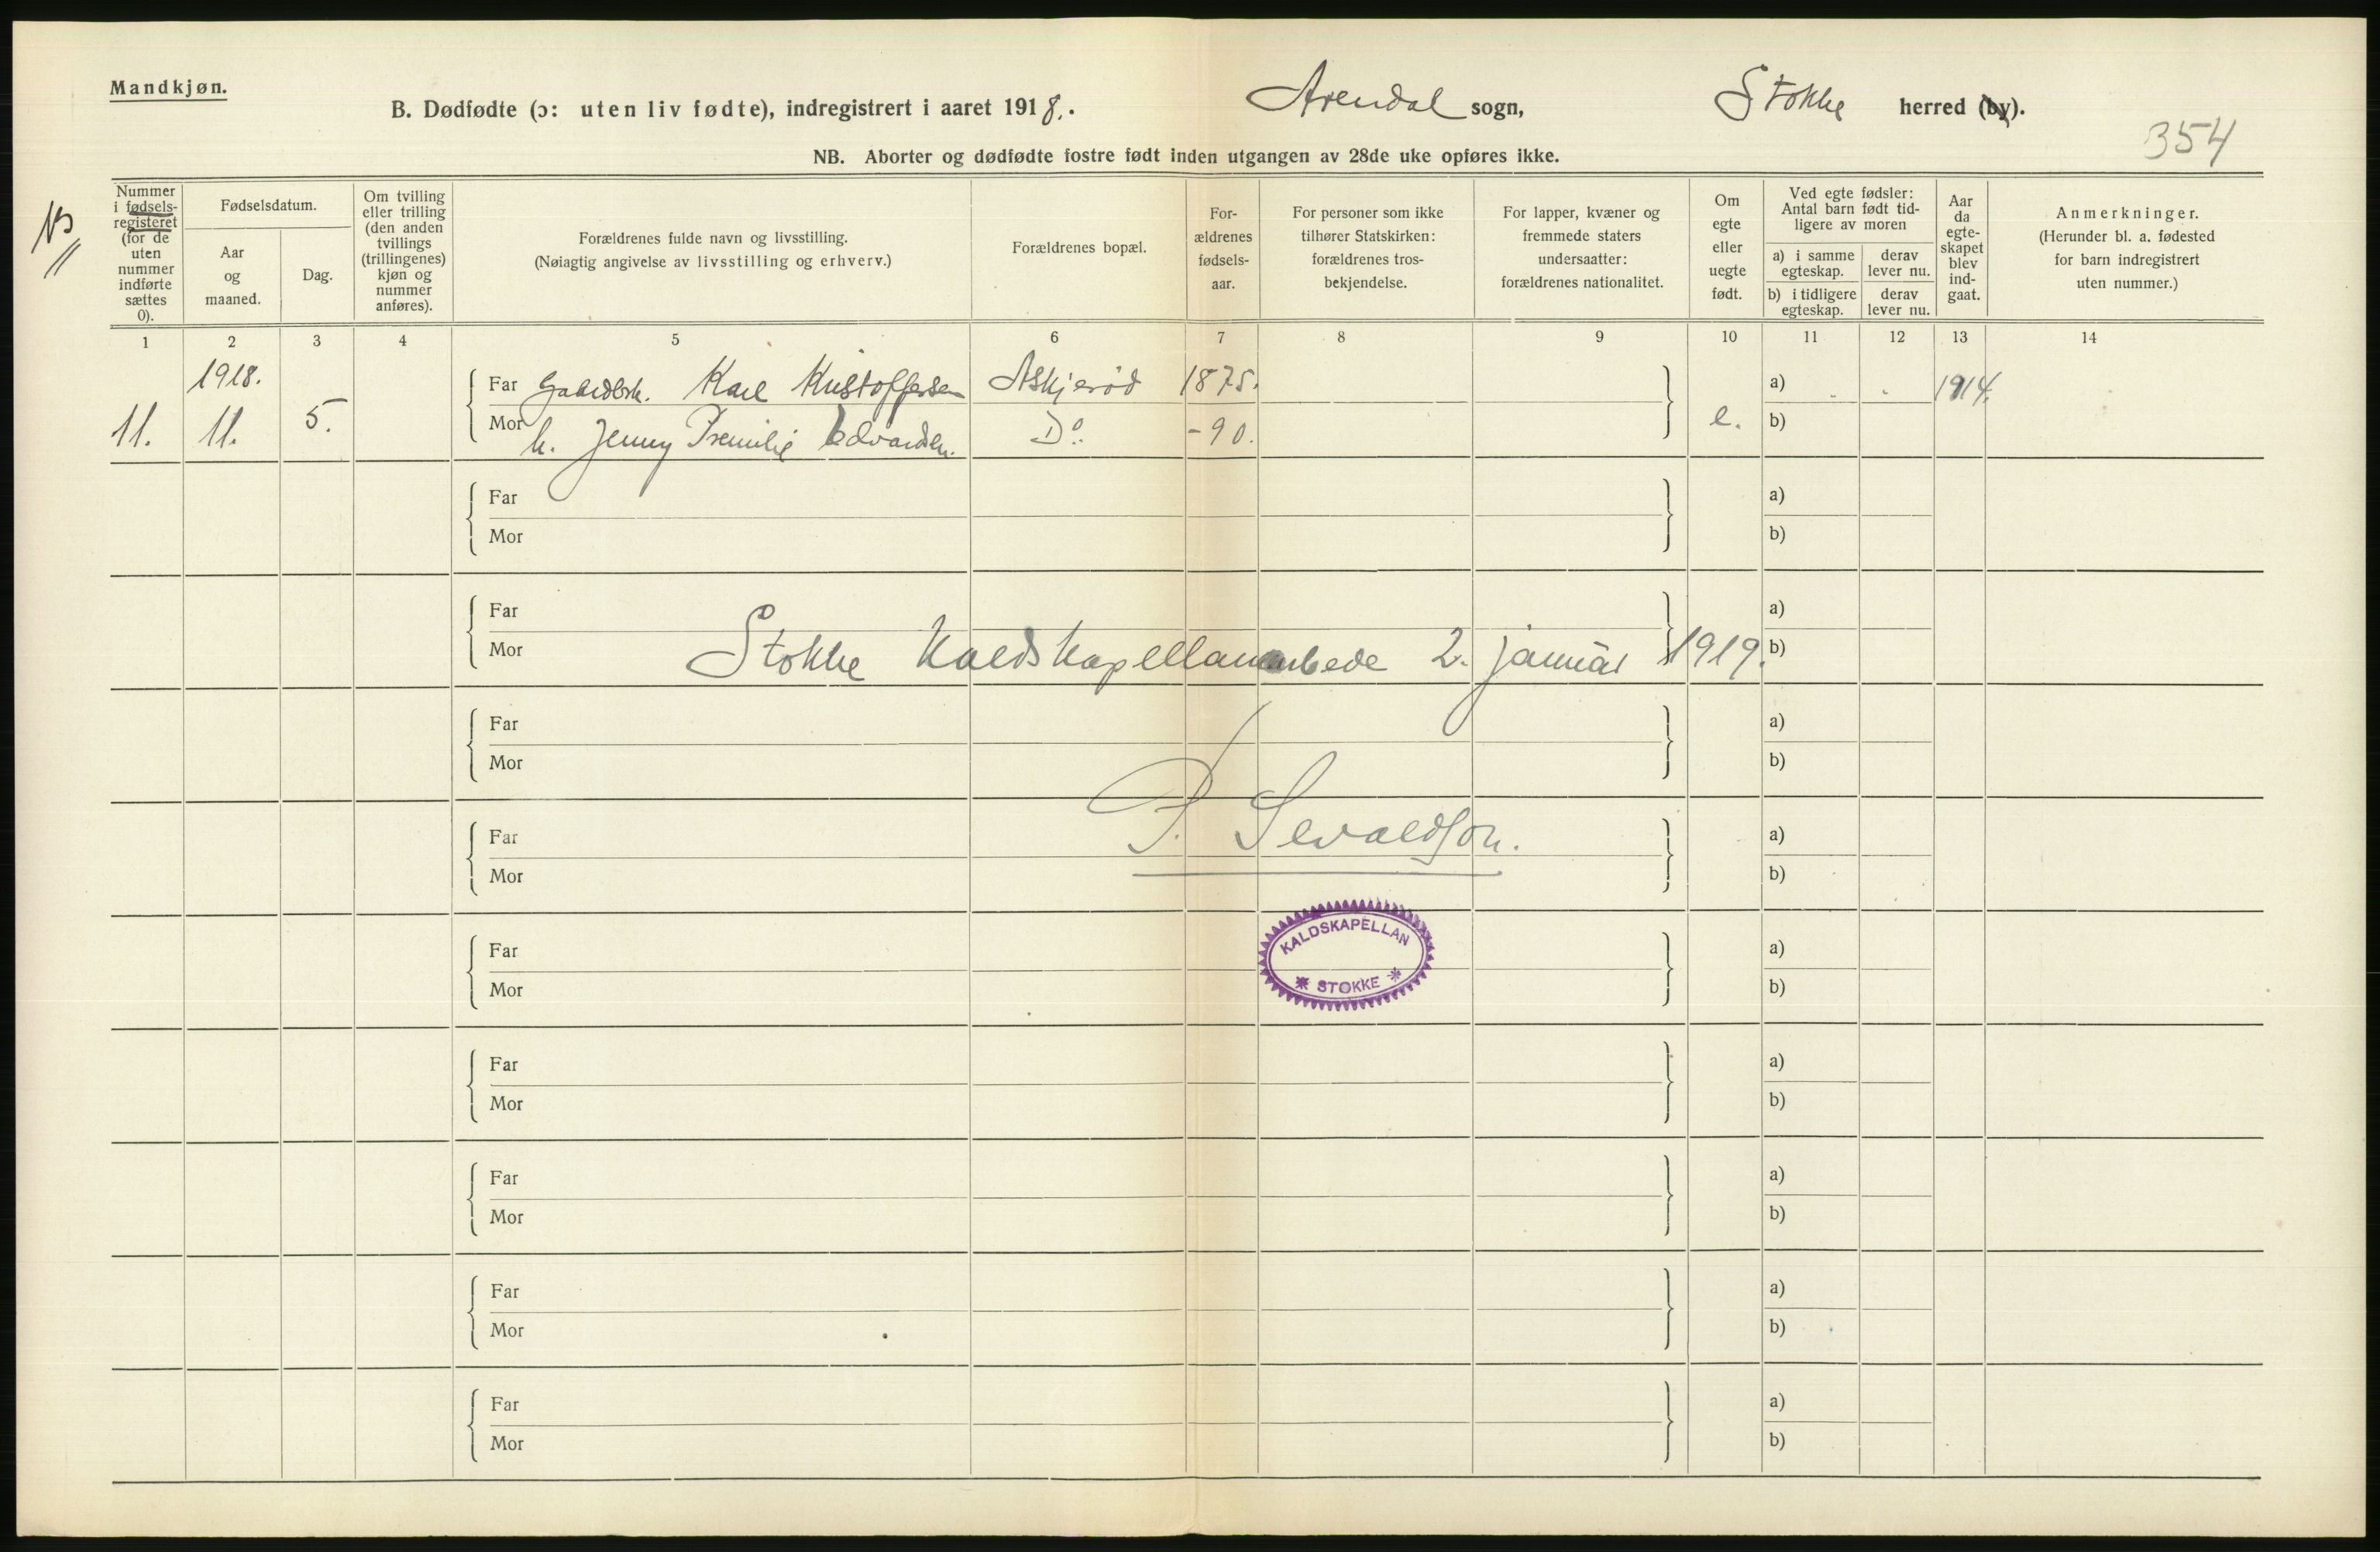 Mandkjøn.
B. Dødfødte (ɔ: uten liv fødte), indregistrert i aaret 1918. Arendal sogn, Stokke herred (by).
354
NB. Aborter og dødfødte fostre født inden utgangen av 28de uke opføres ikke.
Nummer i fødsels-registeret (for de uten nummer indførte sættes 0).
Fødselsdatum.
Aar og maaned.
Dag.
Om tvilling eller trilling (den anden tvillings (trillingenes) kjøn og nummer anføres).
Forældrenes fulde navn og livsstilling.
(Nøiagtig angivelse av livsstilling og erhverv.)
Forældrenes bopæl.
For-ældrenes fødsels-aar.
For personer som ikke tilhører Statskirken: forældrenes tros-bekjendelse.
For lapper, kvæner og fremmede staters undersaatter: forældrenes nationalitet.
Om egte eller uegte født.
Ved egte fødsler: Antal barn født tid-ligere av moren
a) i samme egteskap.
derav lever nu.
b) i tidligere egteskap.
derav lever nu.
Aar da egte-skapet blev ind-gaat.
Anmerkninger.
(Herunder bl. a. fødested for barn indregistrert uten nummer.)
1 2 3 4 5 6 7 8 9 10 11 12 13 14
1918.
Far Karl Kristoffersen Askjerød 1875. a) 1914.
11. 11. 5. Mor h. Jenny Edvardsen. Do. -90. e. b)
Far a)
Mor b)
Far a)
Mor b)
Stokke Kaldskapellanembede 2. januar 1919.
Far a)
Mor b)
P. Sevaldson.
Far a)
Mor b)
KALDSKAPELLAN
* STOKKE *
Far a)
Mor b)
Far a)
Mor b)
Far a)
Mor b)
Far a)
Mor b)
Far a)
Mor b)